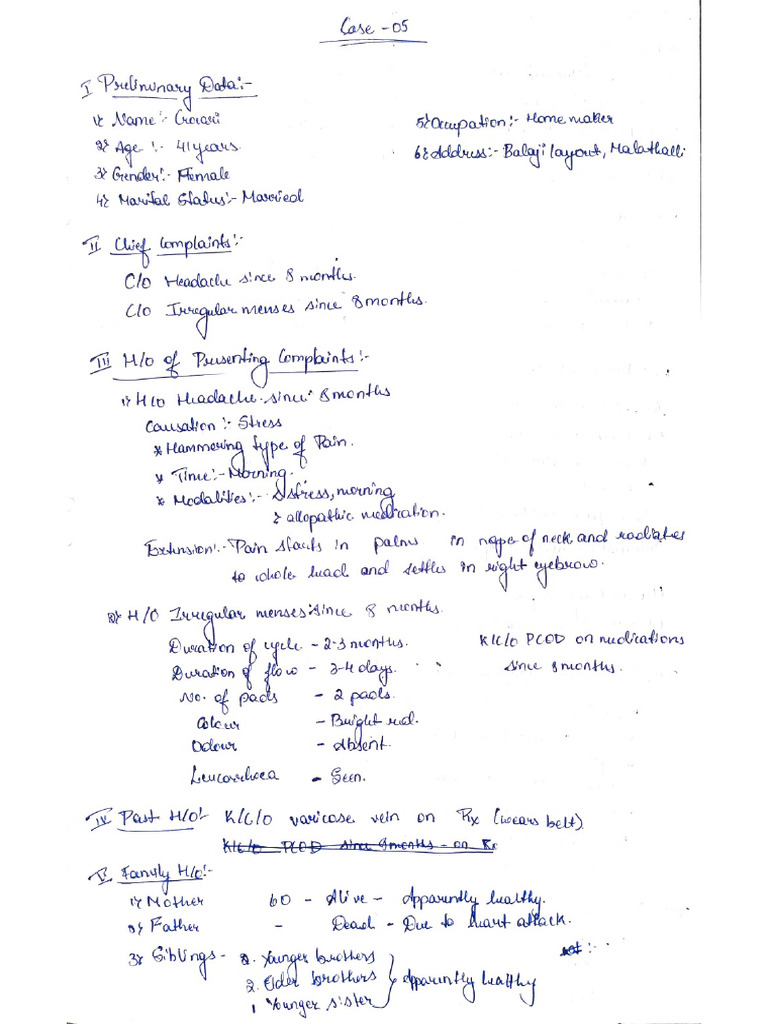 Case - 05
I Preliminary Data:-
1) Name:- Gowri
2) Age :- 41 years.
3) Gender:- Female
4) Marital Status:- Married
5) Occupation:- Home maker
6) Address:- Balaji layout, Malathalli
II Chief Complaints:-
C/O Headache since 8 months.
C/O Irregular menses since 8 months.
III H/O of Presenting Complaints:-
1) H/O Headache since 8 months
Causation:- Stress
* Hammering type of Pain.
* Time:- Morning.
* Modalities:- stress, morning
allopathic medication.
Extension:- Pain starts in palms in nape of neck and radiates
to whole head and settles in right eyebrow.
2) H/O Irregular menses since 8 months.
Duration of cycle - 2-3 months.
K/C/O PCOD on medications
since 8 months.
Duration of flow - 3-4 days.
No. of pads - 2 pads.
Colour - Bright red.
Odour - Absent.
Leucorrhoea - Seen.
IV Past H/O:- K/C/O varicose vein on Rx (wears belt).
K/C/O PCOD since 9 months - on Rx
V Family H/O:-
1) Mother 60 - Alive - Apparently healthy.
2) Father - Dead - Due to heart attack.
3) Siblings - 2. Younger brothers
2. Elder brothers Apparently healthy
1 Younger sister